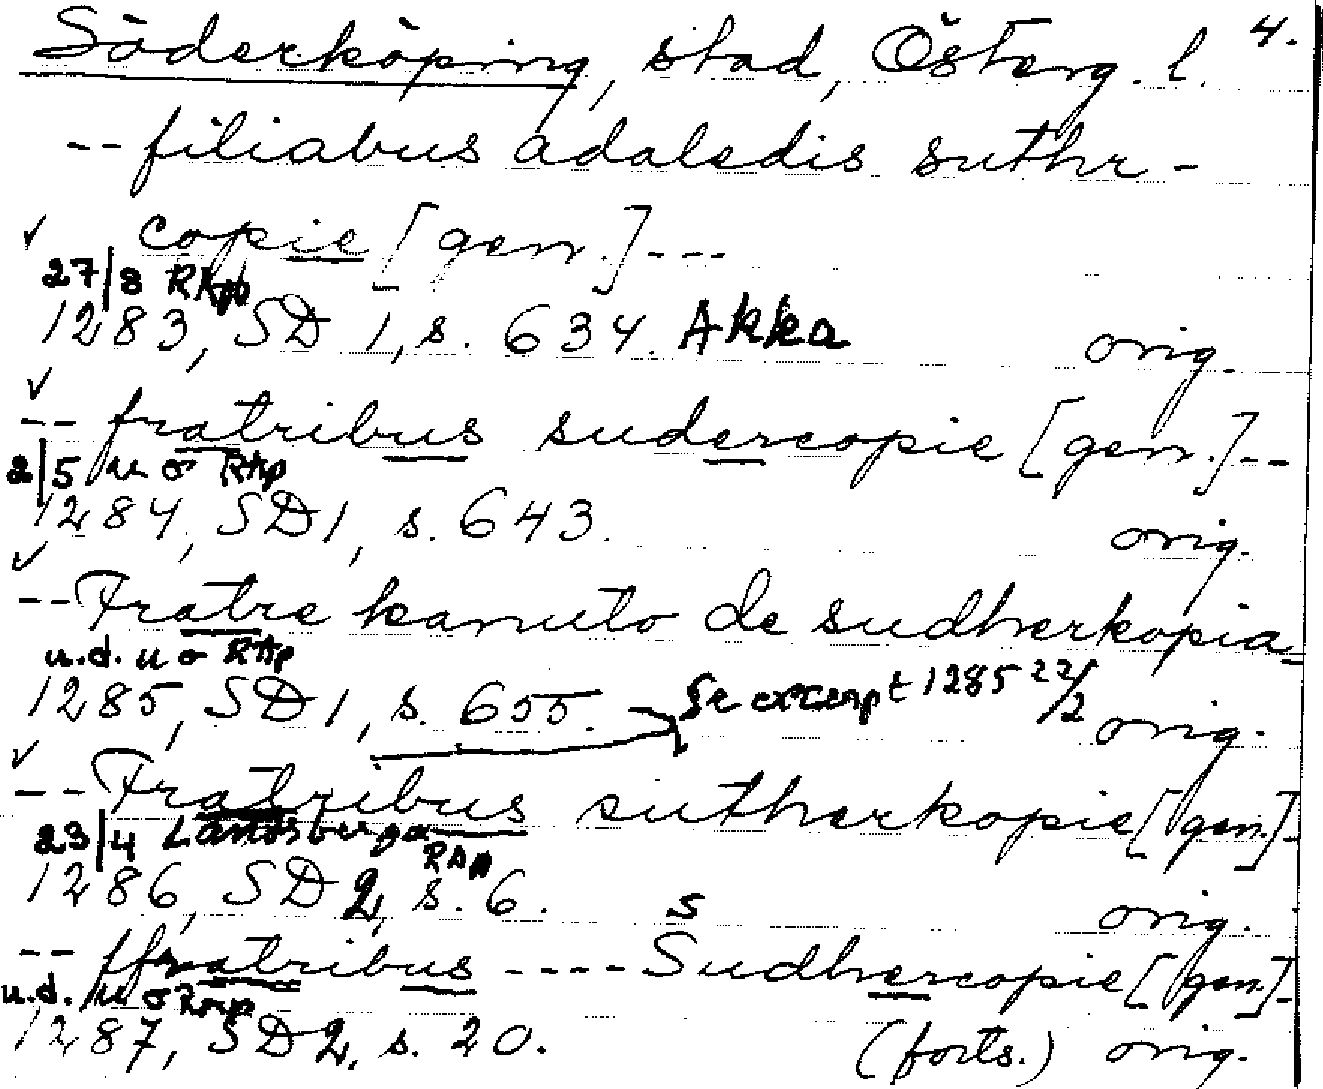 Söderköping, stad, Österg. l. 4.
-- filiabus adaledis suthr-
✓ copie [gen.] ---
27/8 RApp
1283, SD 1, s. 634. Akka orig.
✓
-- fratribus sudercopie [gen.] --
2/5 u o RAp
1284, SD 1, s. 643. orig.
✓
-- Fratre kanuto de sudherkopia
u.d. u o RAp
1285, SD 1, s. 655. Se excerpt 1285 22/2 orig.
✓
-- Fratribus sutherkopie [gen.] -
23/4 Landsberga RAp
1286, SD 2, s. 6. orig.
s
-- ffratribus ---- Sudhercopie [gen.] -
u.d. u o RAp
1287, SD 2, s. 20. (forts.) orig.